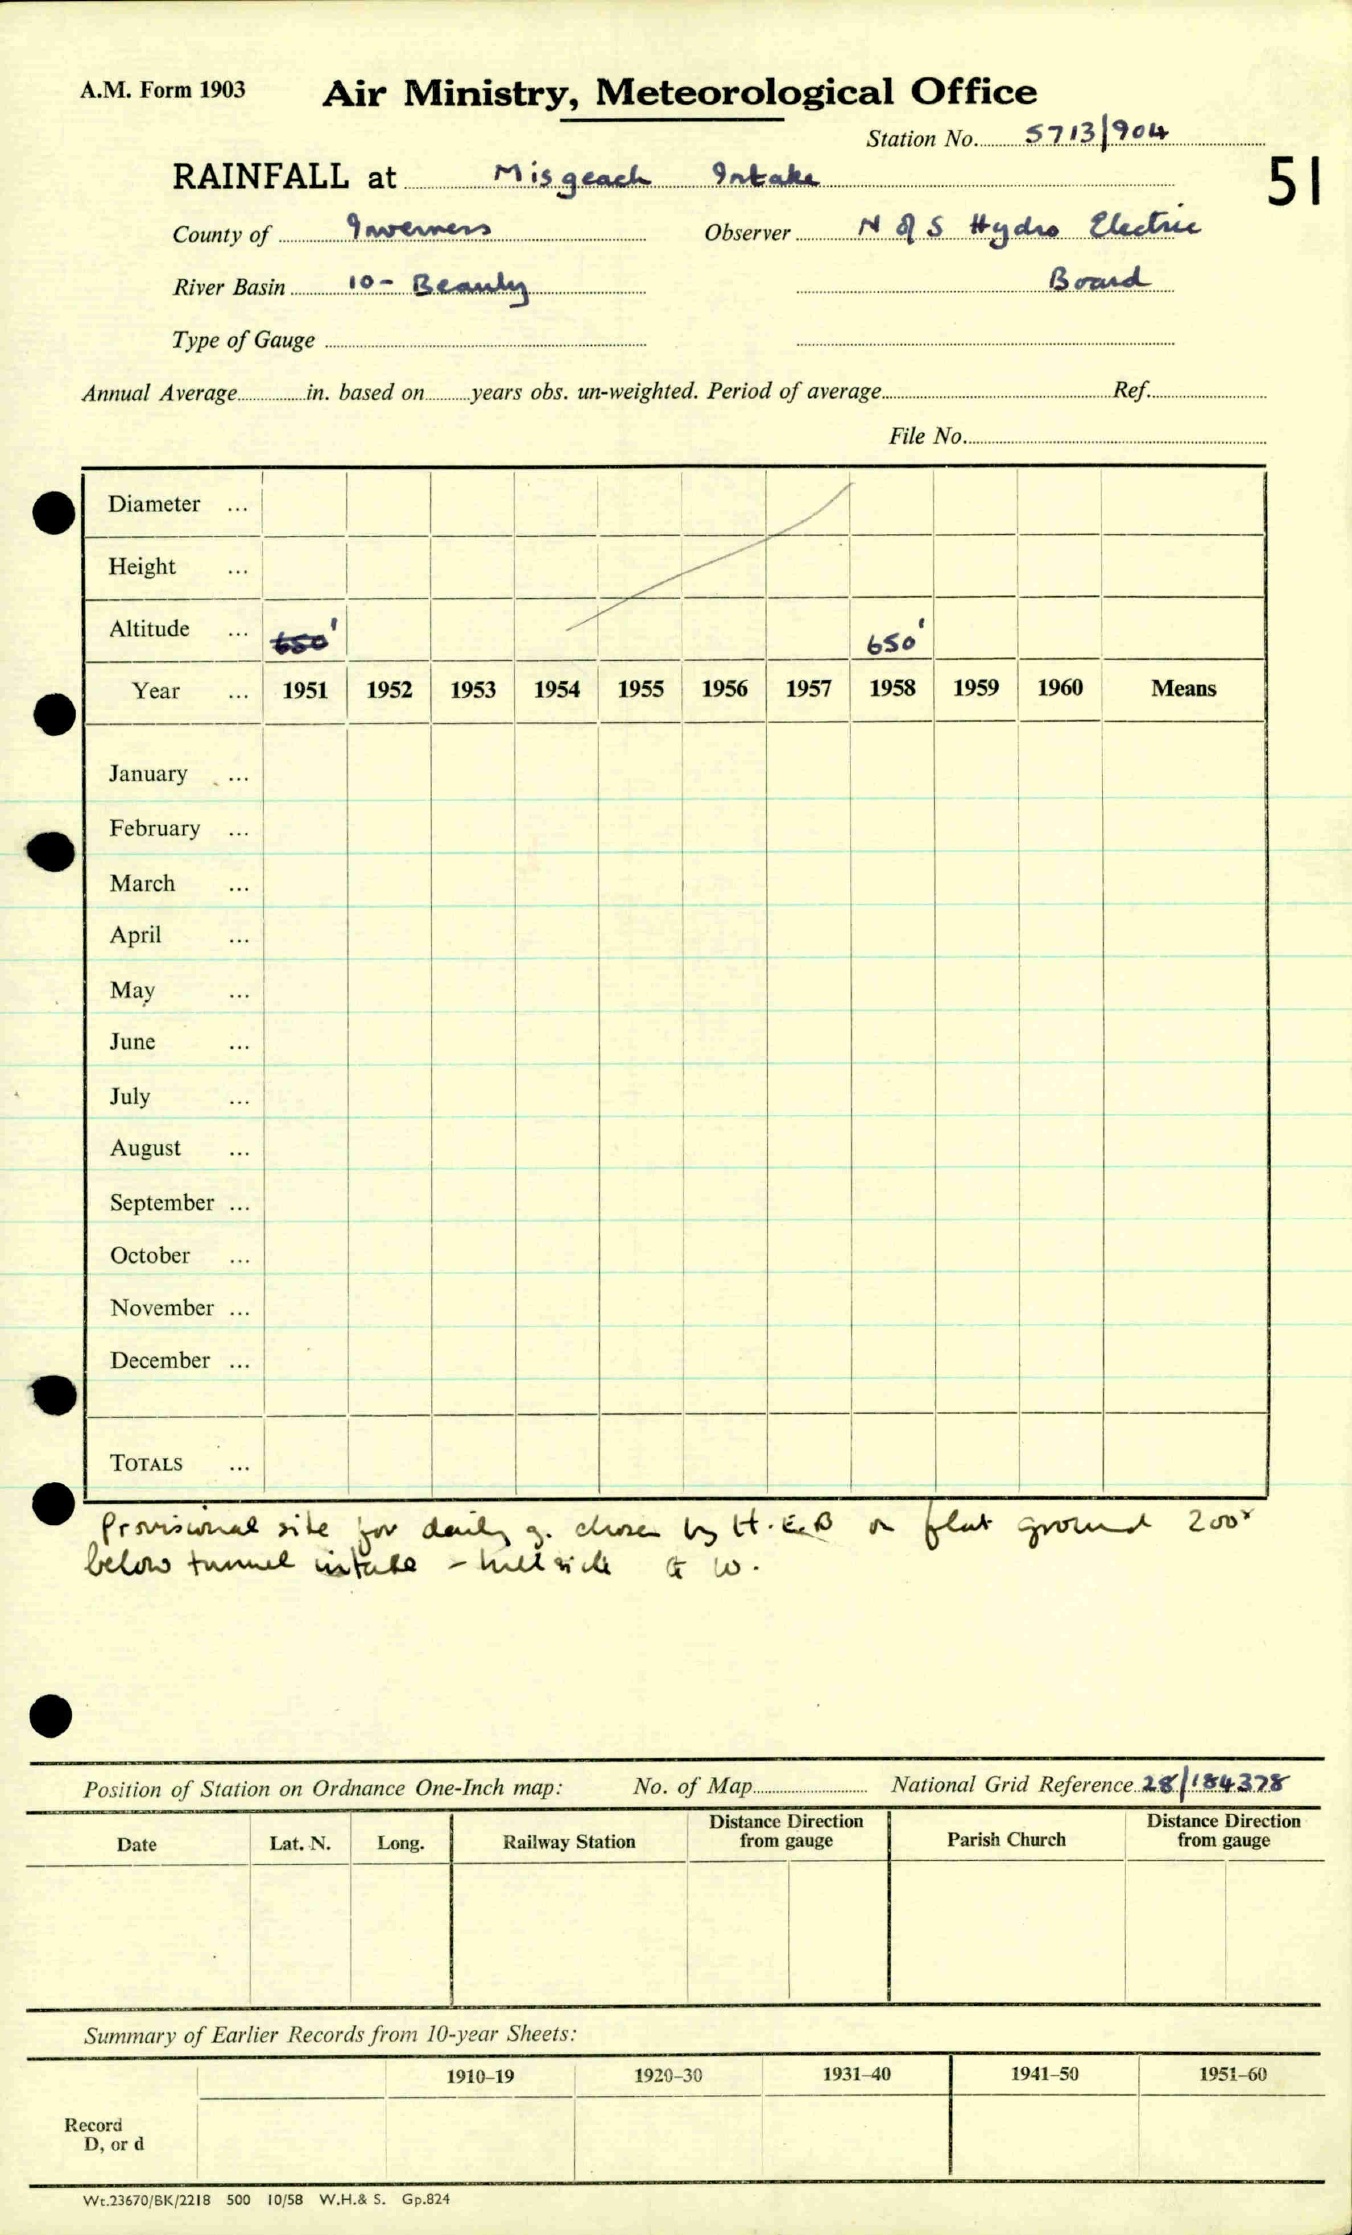 A.M. Form 1903 Air Ministry, Meteorological Office
Station No. 5713/904
RAINFALL at Misgeach Intake 51
County of Inverness Observer N of S Hydro Electric
River Basin 10 - Beauly Board
Type of Gauge
Annual Average in. based on years obs. un-weighted. Period of average Ref.
File No.
Diameter ...
Height ...
Altitude ... 650' 650'
Year ... 1951 1952 1953 1954 1955 1956 1957 1958 1959 1960 Means
January ...
February ...
March ...
April ...
May ...
June ...
July ...
August ...
September ...
October ...
November ...
December ...
TOTALS ...
Provisional site for daily g. chosen by H.E.B on flat ground 200x
below tunnel intake - hillside to W.
Position of Station on Ordnance One-Inch map: No. of Map National Grid Reference 28/184378
Date Lat. N. Long. Railway Station Distance Direction from gauge Parish Church Distance Direction from gauge
Summary of Earlier Records from 10-year Sheets:
1910–19 1920–30 1931–40 1941–50 1951–60
Record
D, or d
Wt.23670/BK/2218 500 10/58 W.H.& S. Gp.824